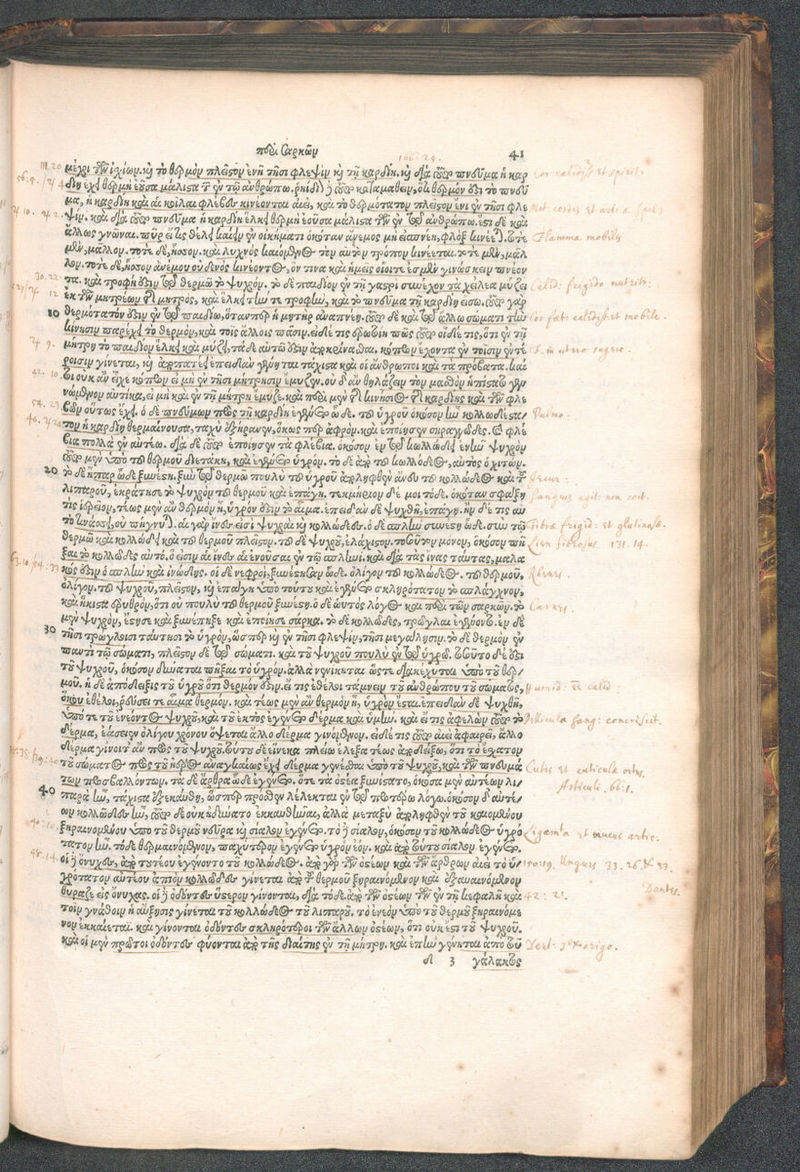 περὶ σαρκῶν 41
μέχρι τῶν ἰχίων. καὶ τὸ θερμὸν πλεῖστον ἔνη τῇσι φλεψὶν καὶ τῇ καρδίῃ. καὶ διὰ τοῦτο πνεῦμα ἡ καρ
δίη ἔχει θερμὴ ἐοῦσα μάλιστα τῶν ἐν τῷ ἀνθρώπῳ. ῥηΐδιον δὲ τοῦτο καταμαθεῖν, ὅτι θερμόν ἐστι τὸ πνεῦ
μα, ἡ καρδίη καὶ αἱ κοῖλαι φλέβες κινέονται αἰεὶ, καὶ τὸ θερμότατον πλεῖστον ἔνι ἐν τῇσι φλε
ψίν. καὶ διὰ τοῦτο πνεῦμα ἡ καρδίη ἕλκει θερμὴ ἐοῦσα μάλιστα τῶν ἐν τῷ ἀνθρώπῳ. ἔστι δὲ καὶ
ἄλλως γνῶναι. πῦρ εἴ τις θέλει καίειν ἐν οἰκήματι ὁκόταν ἄνεμος μὴ ἐσπνέῃ, φλὸξ κινέεται. ὁτὲ
μὲν, μᾶλλον. τοτὲ δὲ, ἧσσον. καὶ λύχνος καιόμενος τὸν αὐτὸν τρόπον κινέεται. τοτὲ μὲν, μᾶλ
λον. τοτὲ δὲ, ἧσσον ἀνέμου οὐδενὸς κινέοντος, ὅν τινα καὶ ἡμεῖς οἷοί τε ἐσμὲν γινώσκειν πνέον
τα. καὶ τροφή ἐστιν τῷ θερμῷ τὸ ψυχρόν. τὸ δὲ παιδίον ἐν τῇ γαστρὶ συνέχον τὰ χείλεα μύζει
ἐκ τῶν μητρέων τῆς μητρὸς, καὶ ἕλκει τήν τε τροφὴν, καὶ τὸ πνεῦμα τῇ καρδίῃ εἴσω. τοῦτο γὰρ
10 θερμότατόν ἐστιν ἐν τῷ παιδίῳ, ὅταν περ ἡ μήτηρ ἀναπνέῃ. τοῦτο δὲ καὶ τῷ ἄλλῳ σώματι τὴν
κίνησιν παρέχει τὸ θερμὸν, καὶ τοῖς ἄλλοις πᾶσιν. εἰ δέ τις ἐρωτῴη πῶς τοῦτο οἶδέ τις, ὅτι ἐν τῇ
μήτρῃ τὸ παιδίον ἕλκει καὶ μύζει, τάδε αὐτῷ ἐστιν ἀποκρίνασθαι, κόπρον ἔχοντα ἐν τοῖσιν ἐντέ
ροισιν γίνεται, καὶ ἀποπατέει ἐπειδὰν γένηται τάχιστα καὶ οἱ ἄνθρωποι καὶ τὰ πρόβατα. καί
τοι οὐκ ἂν εἶχε κόπρον εἰ μὴ ἐν τῇσι μήτρῃσιν ἔμυζεν. οὐδ᾽ ἂν θηλάζειν τὸν μασθὸν ἠπίστατο γεν
νώμενον αὐτίκα, εἰ μὴ καὶ ἐν τῇ μήτρῃ ἔμυζε. καὶ περὶ μὲν τῆς κινήσιος τῆς καρδίης καὶ τῶν φλε
βῶν οὕτως ἔχει. ὁ δὲ πνεύμων πρὸς τῇ καρδίῃ ἐγένετο ὧδε. τοῦ ὑγροῦ ὁκόσον ἦν κολλωδέστα
τον ἡ καρδίη θερμαίνουσα, ταχὺ ἐξήρανεν, ὅκως περ ἀφρὸν. καὶ ἐποίησεν σηραγγῶδες. καὶ φλέ
βια πολλὰ ἐν αὐτέῳ. διὰ δὲ τοῦτο ἐποίησεν τὰ φλέβια. ὁκόσον ἐν τῷ κολλώδει ἐνῆν ψυχρὸν
τοῦτο μὲν ὑπὸ τοῦ θερμοῦ διετάκη, καὶ ἐγένετο ὑγρόν. τὸ δὲ ἀπὸ τοῦ κολλώδεος, αὐτὸς ὁ χιτών.
20 τὸ δὲ ἧπαρ ὧδε ξυνέστη. ξὺν τῷ θερμῷ πουλὺ τοῦ ὑγροῦ ἀποληφθὲν ἄνευ τοῦ κολλώδεος καὶ τοῦ
λιπαροῦ, ἐκράτησε τὸ ψυχρὸν τοῦ θερμοῦ καὶ ἐπάγη. τεκμήριον δέ μοι τόδε. ὁκόταν σφάξῃ
τις ἱερεῖον, τέως μὲν ἂν θερμὸν ᾖ, ὑγρόν ἐστιν τὸ αἷμα. ἐπειδὰν δὲ ψυχθῇ, ἐπάγη. ἢν δέ τις αὐ
τὸ τινάσσῃ, οὐ πήγνυται. αἱ γὰρ ἶνές εἰσι ψυχραὶ καὶ κολλώδεες. ὁ δὲ σπλὴν συνέστη ὧδε. σὺν τῷ
θερμῷ καὶ κολλώδει καὶ τοῦ θερμοῦ πλεῖστον. τοῦ δὲ ψυχροῦ, ἐλάχιστον. τοσοῦτον μοῦνον, ὁκόσον πῆ
ξαι τὸ κολλῶδες αὐτό. ὅ εἰσιν αἱ ἶνες αἱ ἐνοῦσαι ἐν τῷ σπληνί. καὶ διὰ τὰς ἶνας ταύτας, μαλα
κός ἐστιν ὁ σπλὴν καὶ ἰνώδης. οἱ δὲ νεφροὶ, ξυνέστησαν ὧδε. ὀλίγον τοῦ κολλώδεος. τοῦ θερμοῦ,
ὀλίγον. τοῦ ψυχροῦ, πλεῖστον, καὶ ἐπάγη ὑπὸ τούτου καὶ ἐγένετο σκληρότατον τὸ σπλάγχνον,
καὶ ἥκιστα ἐρυθρὸν, ὅτι οὐ πουλὺ τοῦ θερμοῦ ξυνέστη. ὁ δὲ ὡυτὸς λόγος καὶ περὶ τῶν σαρκῶν. τὸ
μὲν ψυχρὸν, ἔστησε καὶ ξυνέπηξε καὶ ἐποίησε σάρκα. τὸ δὲ κολλῶδες, τρῶγλαι ἐγένοντο. ἐν δὲ
30 τῇσι τρώγλῃσι ταύτῃσι τὸ ὑγρὸν, ὥσπερ καὶ ἐν τῇσι φλεψὶν, τῇσι μεγάλῃσιν. τὸ δὲ θερμὸν ἐν
παντὶ τῷ σώματι, πλεῖστον δὲ τῷ σώματι. καὶ τοῦ ψυχροῦ πουλὺ ἐν τῷ ὑγρῷ. τοῦτο δέ ἐστι
τοῦ ψυχροῦ, ὁκόσον δύναται πῆξαι τὸ ὑγρόν. ἀλλὰ νενίκηται ὥστε διακέχυται ὑπὸ τοῦ θερ
μοῦ. ἡ δὲ ἀπόδειξις τοῦ ὑγροῦ ὅτι θερμόν ἐστιν. εἴ τις ἐθέλοι τάμνειν τοῦ ἀνθρώπου τοῦ σώματος,
ὅκου ἐθέλοι, ῥεύσεται αἷμα θερμόν. καὶ τέως μὲν ἂν θερμὸν ᾖ, ὑγρὸν ἔσται. ἐπειδὰν δὲ ψυχθῇ,
ὑπό τε τοῦ ἐνεόντος ψυχροῦ, καὶ τοῦ ἐκτὸς ἐγένετο δέρμα καὶ ὑμήν. καὶ εἴ τις ἀφελὼν τοῦτο τὸ
δέρμα, ἐάσειεν ὀλίγον χρόνον ὄψεται ἄλλο δέρμα γινόμενον. εἰ δέ τις τοῦτο αἰεὶ ἀφαιρέει, ἄλλο
δέρμα γίνοιτ᾽ ἂν πρὸς τοῦ ψυχροῦ. τούτου δὲ εἵνεκα πλείω ἔλεξα τέως ἀποδείξω, ὅτι τὸ ἔσχατον
τοῦ σώματος πρὸς τοῦ ἠέρος ἀναγκαίως ἔχει δέρμα γενέσθαι ὑπὸ τοῦ ψυχροῦ, καὶ τῶν πνευμά
των προσβαλλόντων. τὰ δὲ ἄρθρα ὧδε ἐγένετο. ὅτε τὰ ὀστέα ξυνίστατο, ὁκόσα μὲν αὐτέων λι
40 παρὰ ἦν, τάχιστα ἐξεκαύθη, ὥσπερ πρόσθεν λέλεκται ἐν τῷ προτέρῳ λόγῳ. ὁκόσον δ᾽ αὐτέ
ων κολλῶδες ἦν, τοῦτο δὲ οὐκ ἠδύνατο ἐκκαυθῆναι, ἀλλὰ μεταξὺ ἀποληφθὲν τοῦ καιομένου
ξηραινομένου ὑπὸ τοῦ θερμοῦ νεῦρα καὶ σίαλον ἐγένετο. τὸ δὲ σίαλον, ὁκόσον τοῦ κολλώδεος ὑγρό
τατον ἦν. τόδε θερμαινόμενον, παχύτερον ἐγένετο ὑγρὸν ἐόν. καὶ ἀπὸ τούτου σίαλον ἐγένετο.
οἱ δὲ ὄνυχες, ἀπὸ τουτέου ἐγένοντο τοῦ κολλώδεος. ἀπὸ γὰρ τῶν ὀστέων καὶ τῶν ἄρθρων αἰεὶ τὸ ὑ
γρότατον αὐτέου ἀπιὸν κολλῶδες γίνεται ἀπὸ τοῦ θερμοῦ ξηραινόμενον καὶ ἐξαυαινόμενον
θύραζε εἰς ὄνυχας. οἱ δὲ ὀδόντες ὕστερον γίνονται, διὰ τόδε ἀπὸ τῶν ὀστέων τῶν ἐν τῇ κεφαλῇ καὶ
τοῖν γνάθοιν ἡ αὔξησις γίνεται τοῦ κολλώδεος τοῦ λιπαροῦ. τὸ ἐνεὸν ὑπὸ τοῦ θερμοῦ ξηραινόμε
νον ἐκκαίεται. καὶ γίνονται ὀδόντες σκληρότεροι τῶν ἄλλων ὀστέων, ὅτι οὐκ ἔστι τοῦ ψυχροῦ.
καὶ οἱ μὲν πρῶτοι ὀδόντες φύονται ἀπὸ τῆς διαίτης ἐν τῇ μήτρῃ. καὶ ἐπὴν γένηται ἀπὸ τοῦ
d 3 γάλακτος
Flamma mobilis
Calid: frigido nutrit:
Pulmo.
Jecur:
Renes.
Carnes.
Cutis et cuticula ortus.
Articuli. 66:1.
Dentes.